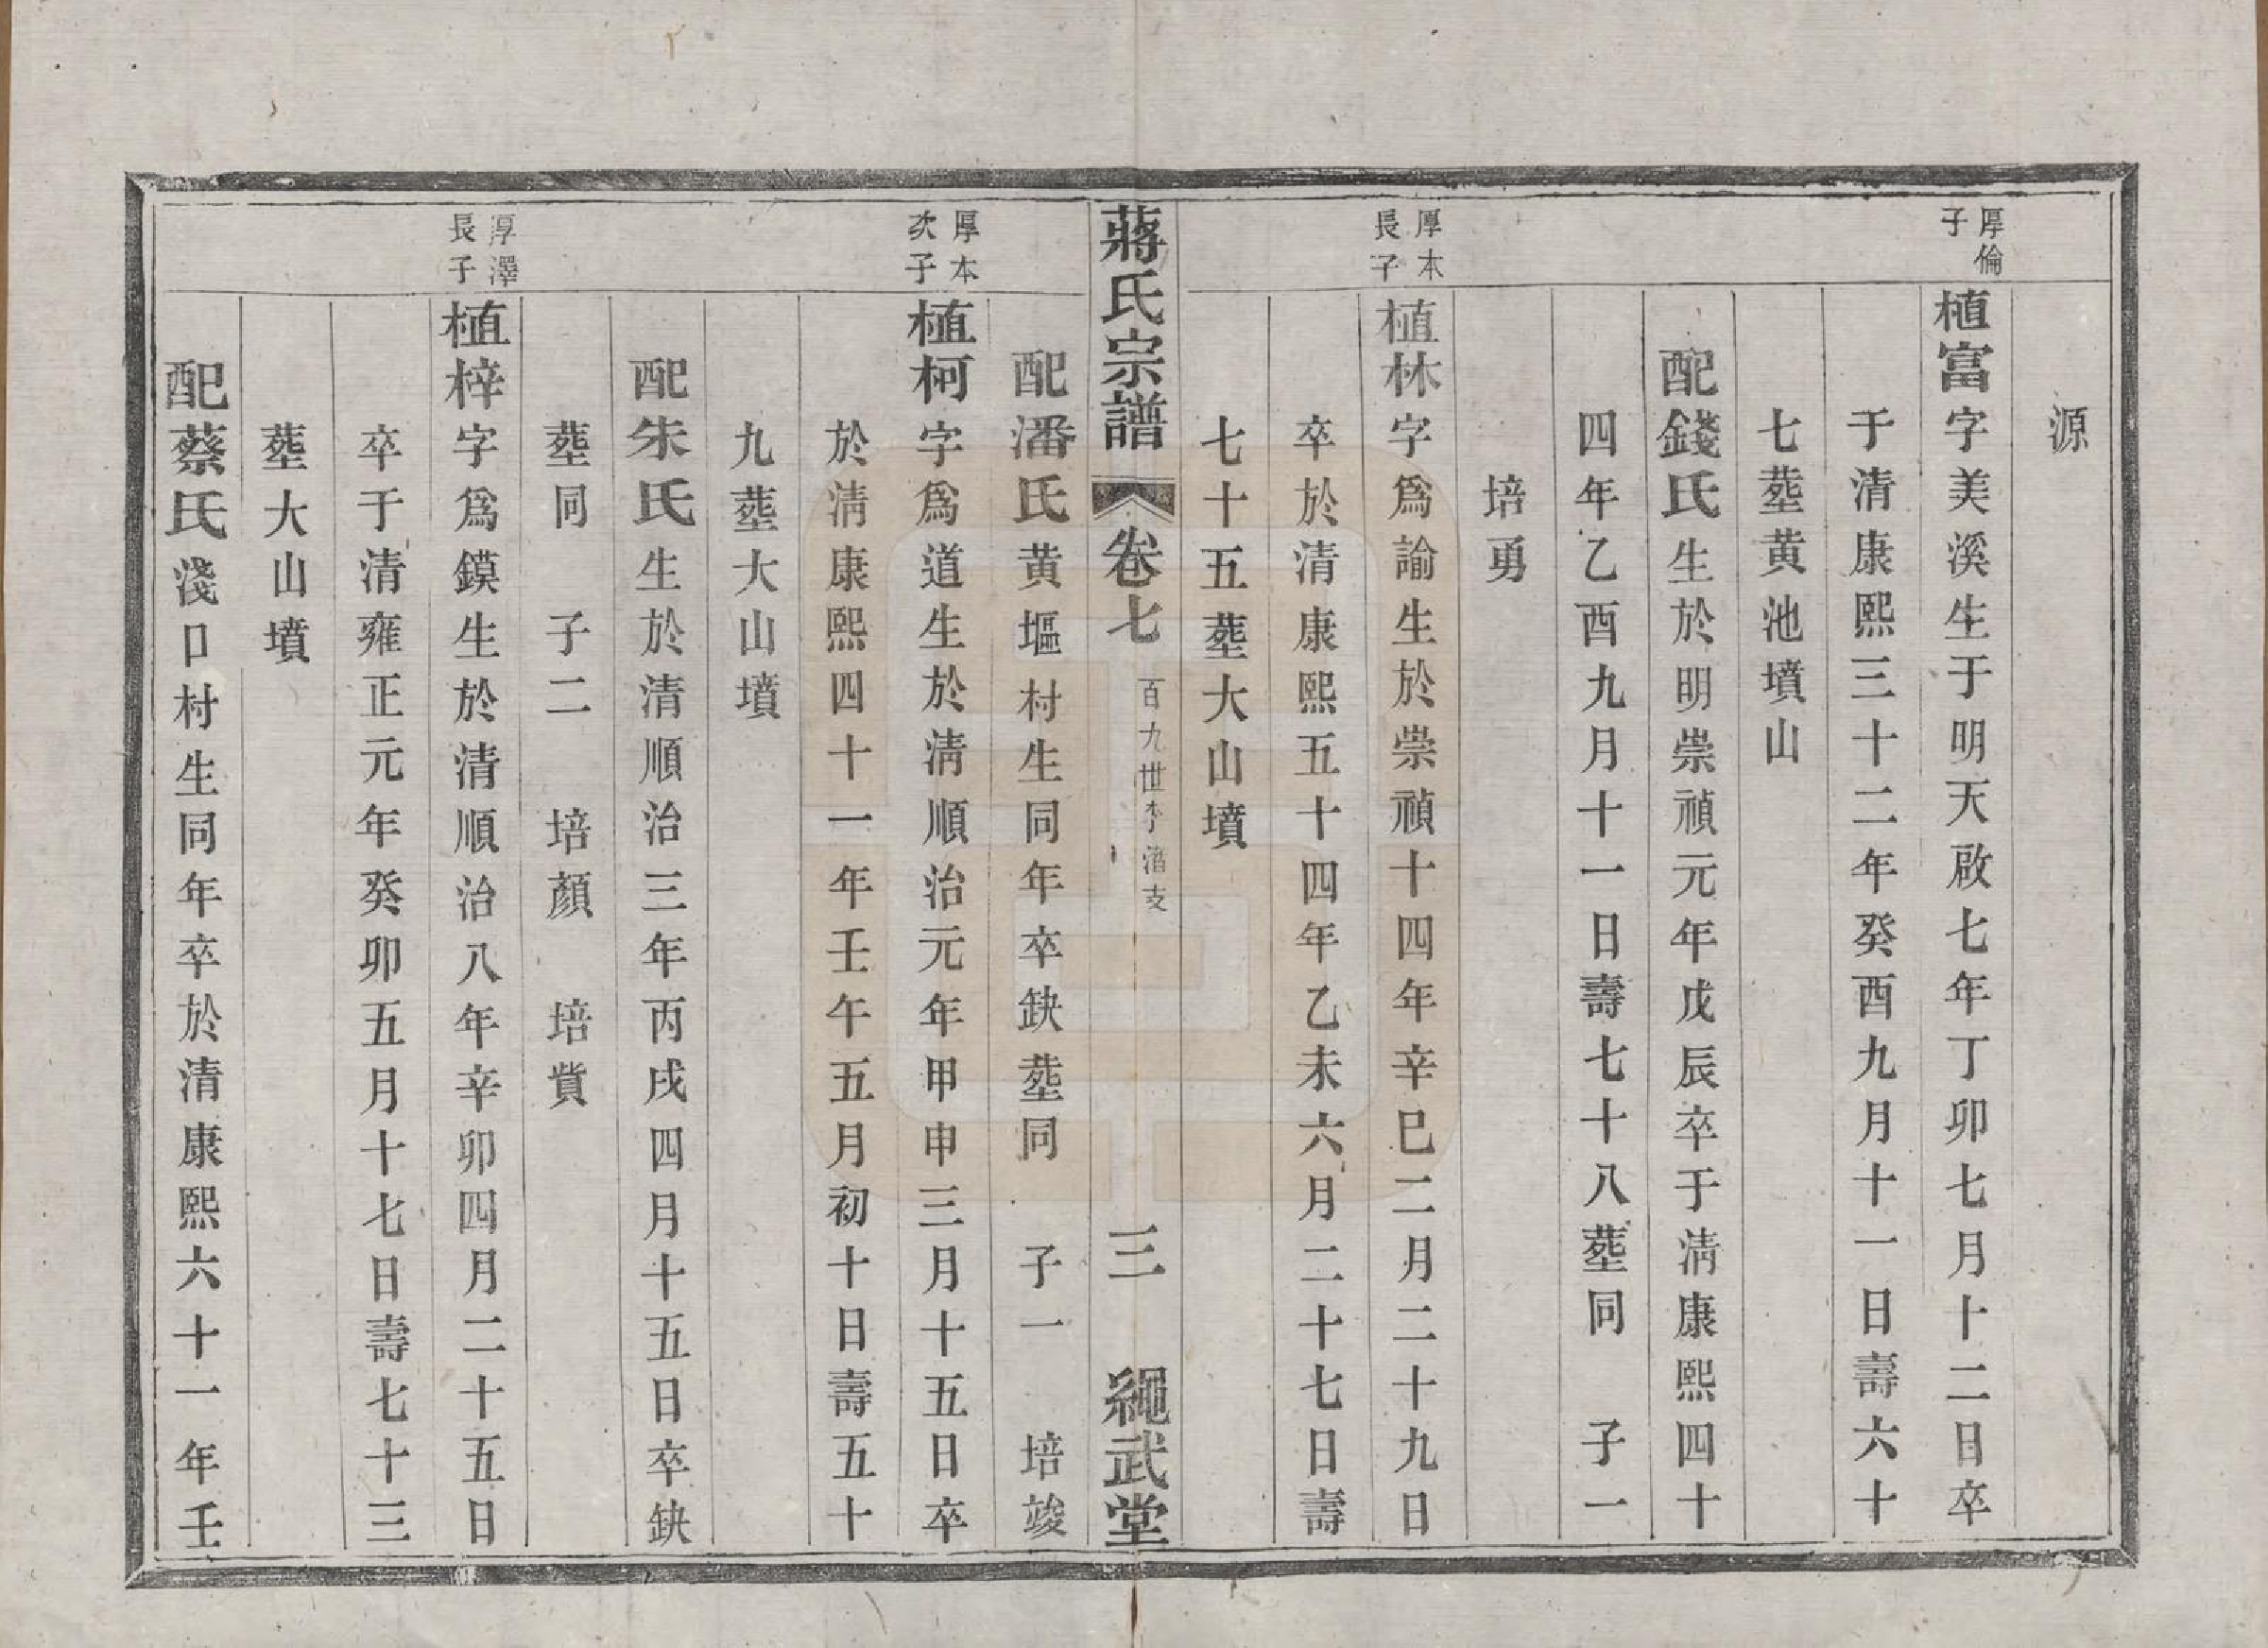 源
厚倫
子
植富字美溪生于明天啟七年丁卯七月十二日卒
于清康熙三十二年癸酉九月十一日壽六十
七塟黄池墳山
配錢氏生於明崇禎元年戊辰卒于淸康熙四十
四年乙酉九月十一日壽七十八塟同 子一
培勇
厚本
長子
植林字爲諭生於崇禎十四年辛巳二月二十九日
卒於清康熙五十四年乙未六月二十七日壽
七十五塟大山墳
蔣氏宗譜 卷七 百九世 支 三 繩武堂
配潘氏黄塸村生同年卒缺塟同 子一 培竣
厚本
次子
植柯字爲道生於淸順治元年甲申三月十五日卒
於淸康熙四十一年壬午五月初十日壽五十
九塟大山墳
配朱氏生於清順治三年丙戌四月十五日卒缺
塟同 子二 培顏 培貲
厚澤
長子
植梓字爲鏌生於清順治八年辛卯四月二十五日
卒于清雍正元年癸卯五月十七日壽七十三
塟大山墳
配蔡氏淺口村生同年卒於清康熙六十一年壬